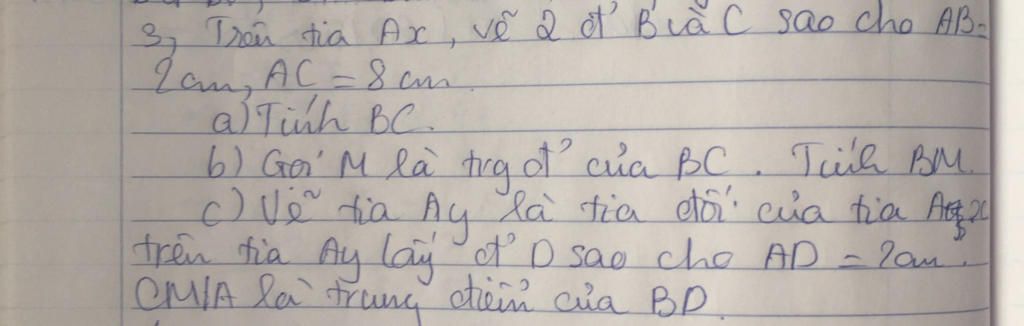 3, Trên tia Ax, vẽ 2 đ' B và C sao cho AB=
2cm, AC = 8 cm.
a) Tính BC.
b) Gọi M là trg đ' của BC. Tính BM.
c) Vẽ tia Ay là tia đối của tia Ax
trên tia Ay lấy đ' D sao cho AD = 2cm.
CM/A là trung điểm của BD.